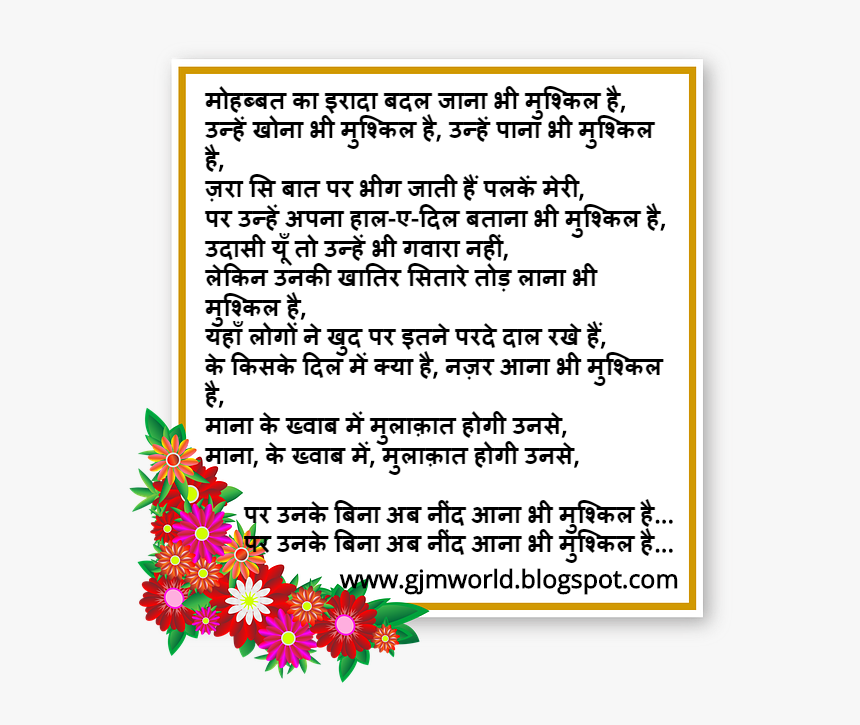 मोहब्बत का इरादा बदल जाना भी मुश्किल है,
उन्हें खोना भी मुश्किल है, उन्हें पाना भी मुश्किल
है,
ज़रा सि बात पर भीग जाती हैं पलकें मेरी,
पर उन्हें अपना हाल-ए-दिल बताना भी मुश्किल है,
उदासी यूँ तो उन्हें भी गवारा नहीं,
लेकिन उनकी खातिर सितारे तोड़ लाना भी
मुश्किल है,
यहाँ लोगों ने खुद पर इतने परदे दाल रखे हैं,
के किसके दिल में क्या है, नज़र आना भी मुश्किल
है,
माना के ख्वाब में मुलाक़ात होगी उनसे,
माना, के ख्वाब में, मुलाक़ात होगी उनसे,
पर उनके बिना अब नींद आना भी मुश्किल है...
पर उनके बिना अब नींद आना भी मुश्किल है...
www.gjmworld.blogspot.com